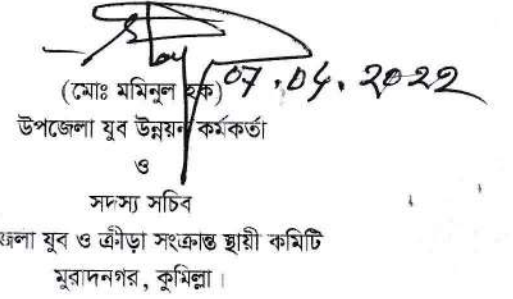 07.04.2022
(মোঃ মমিনুল হক)
উপজেলা যুব উন্নয়ন কর্মকর্তা
ও
সদস্য সচিব
জেলা যুব ও ক্রীড়া সংক্রান্ত স্থায়ী কমিটি
মুরাদনগর, কুমিল্লা।